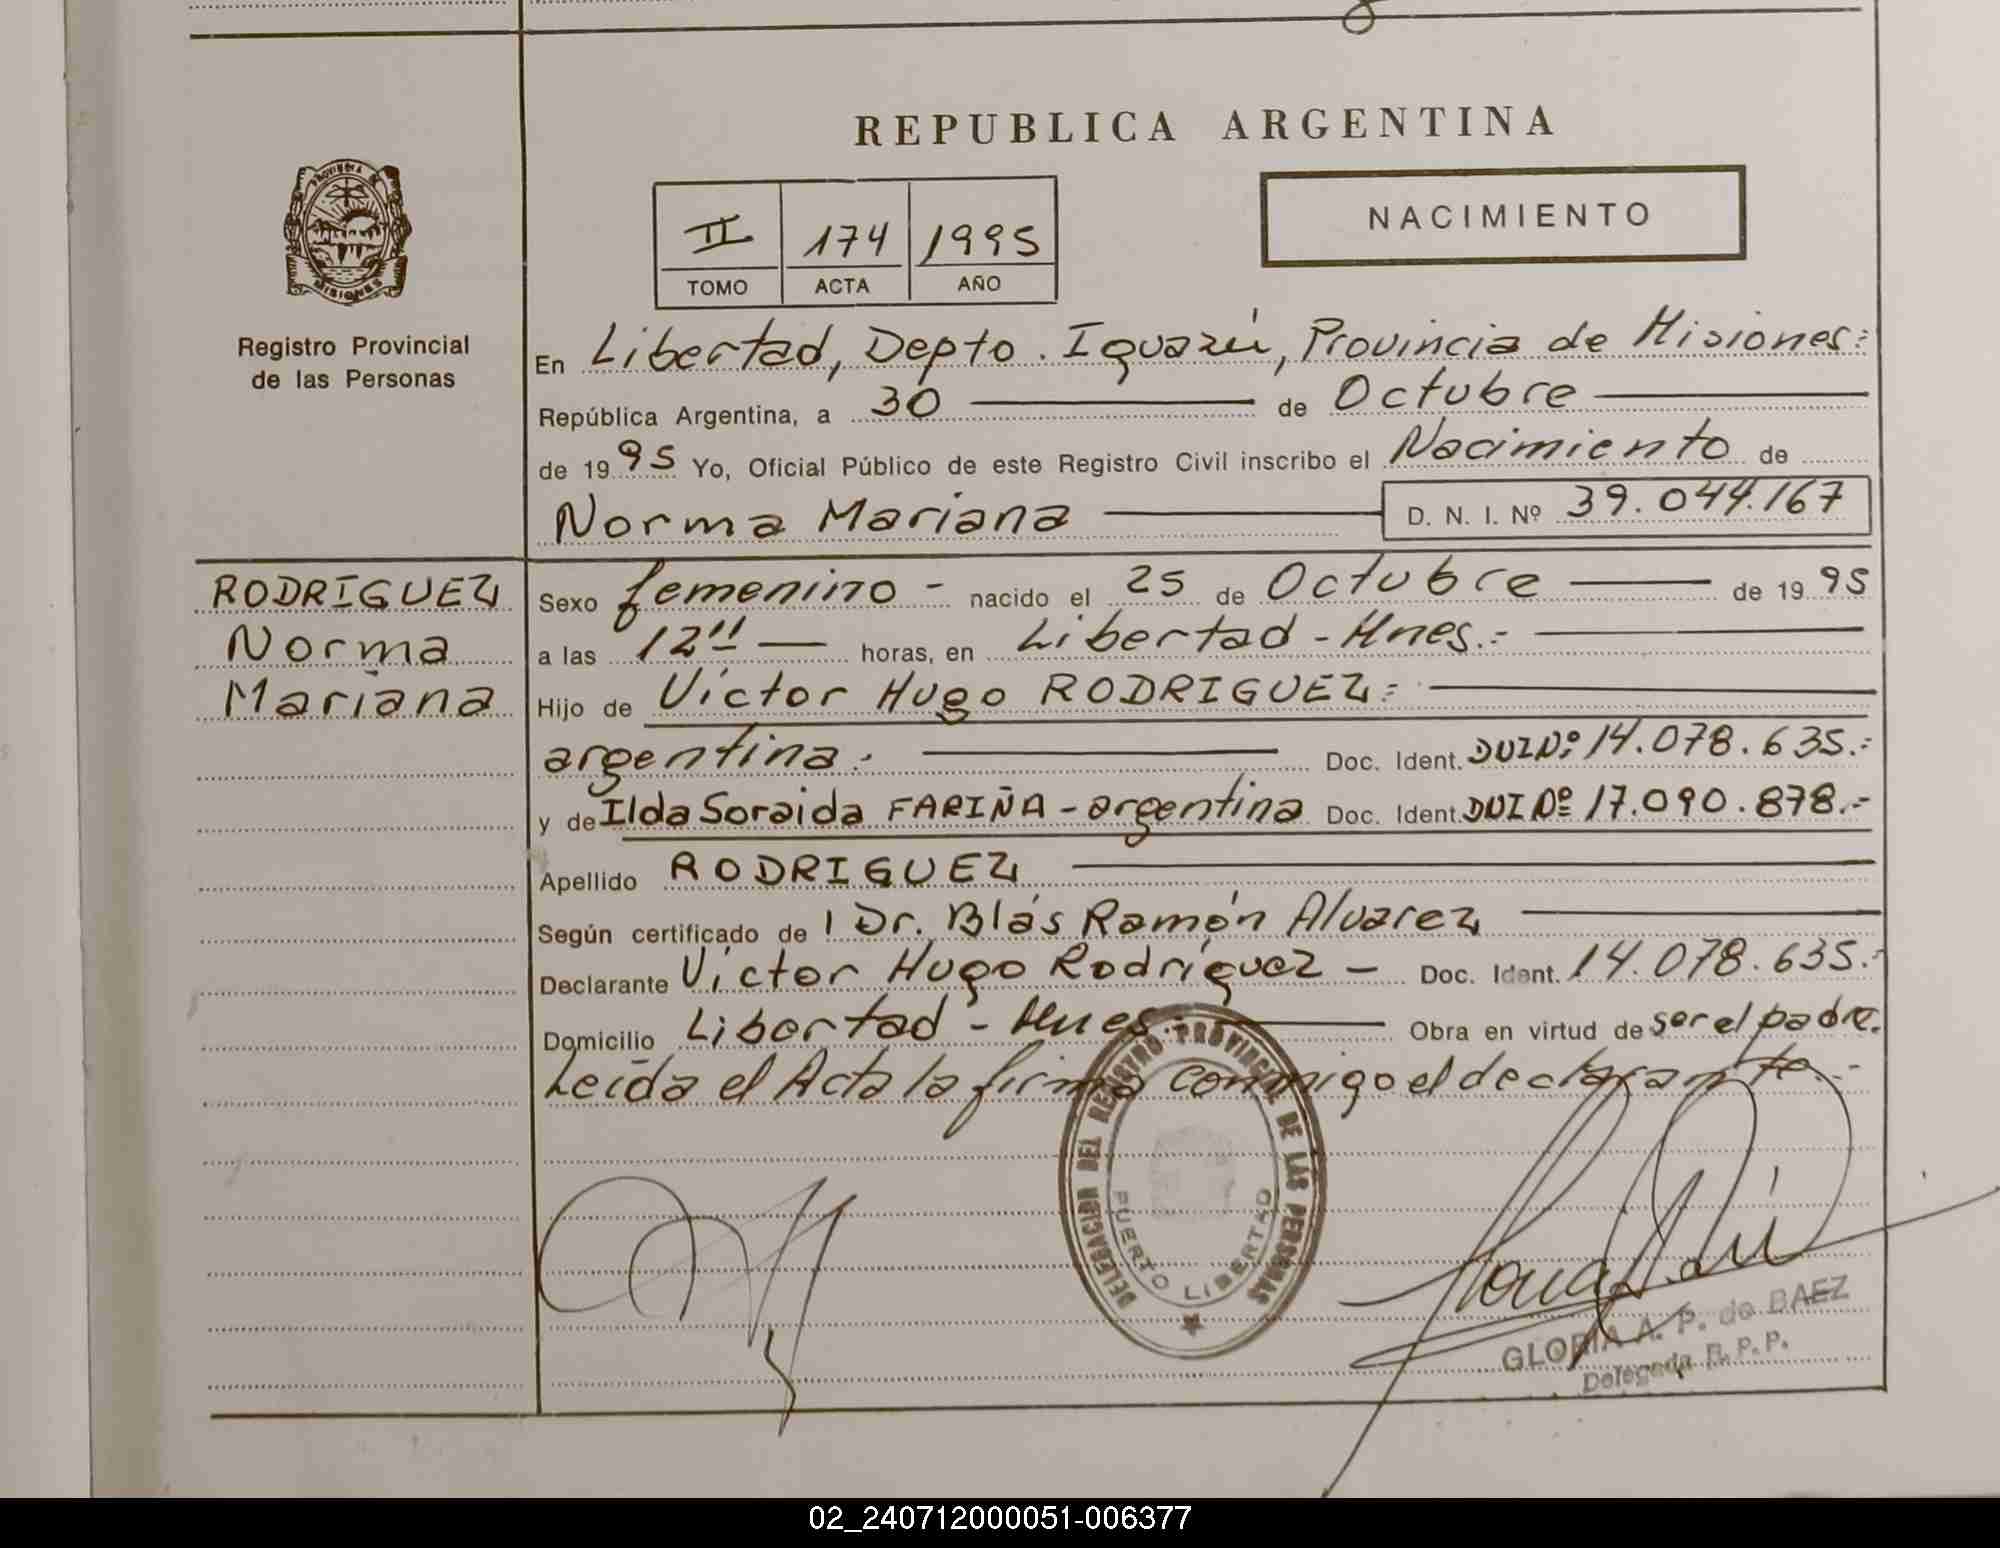 REPUBLICA ARGENTINA
PROVINCIA DE
MISIONES
Registro Provincial
de las Personas
II 174 1995
TOMO ACTA AÑO
NACIMIENTO
En Libertad, Depto. Iguazú, Provincia de Misiones:
República Argentina, a 30 de Octubre
de 1995 Yo, Oficial Público de este Registro Civil inscribo el Nacimiento de
Norma Mariana D. N. I. Nº 39.044.167
RODRIGUEZ
Norma
Mariana
Sexo femenino - nacido el 25 de Octubre de 1995
a las 12 horas, en Libertad - Mnes.-
Hijo de Víctor Hugo RODRIGUEZ:
argentina.- Doc. Ident. DUI Nº 14.078.635.-
y de Ilda Soraida FARIÑA - argentina Doc. Ident. DUI Nº 17.090.878.-
Apellido RODRIGUEZ
Según certificado de l Dr. Blás Ramón Alvarez
Declarante Víctor Hugo Rodríguez - Doc. Ident. 14.078.635.-
Domicilio Libertad - Mnes.- Obra en virtud de ser el padre.
Leída el Acta la firma conmigo el declarante.-
DELEGACION DEL REGISTRO PROVINCIAL DE LAS PERSONAS
PUERTO LIBERTAD
GLORIA A. P. de BAEZ
Delegada R. P. P.
02_240712000051-006377